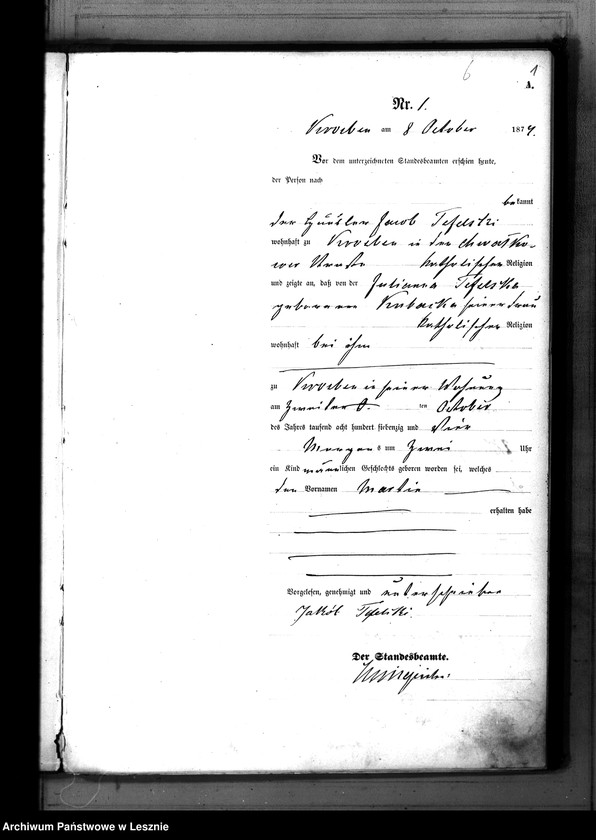 6 1
A.
Nr. 1.
Kroeben am 8 October 1874.
Vor dem unterzeichneten Standesbeamten erschien heute,
der Person nach
bekannt
der Häusler Jacob
wohnhaft zu Kroeben in der
katholischer Religion
und zeigte an, daß von der Julianna
geborenen seiner Frau
katholischer Religion
wohnhaft bei ihm
zu Kroeben in seiner Wohnung
am ten October
des Jahres tausend acht hundert siebenzig und vier
Morgens um zwei Uhr
ein Kind männlichen Geschlechts geboren worden sei, welches
den Vornamen Martin
erhalten habe
Vorgelesen, genehmigt und unterschrieben
Jakób
Der Standesbeamte.
Archiwum Państwowe w Lesznie